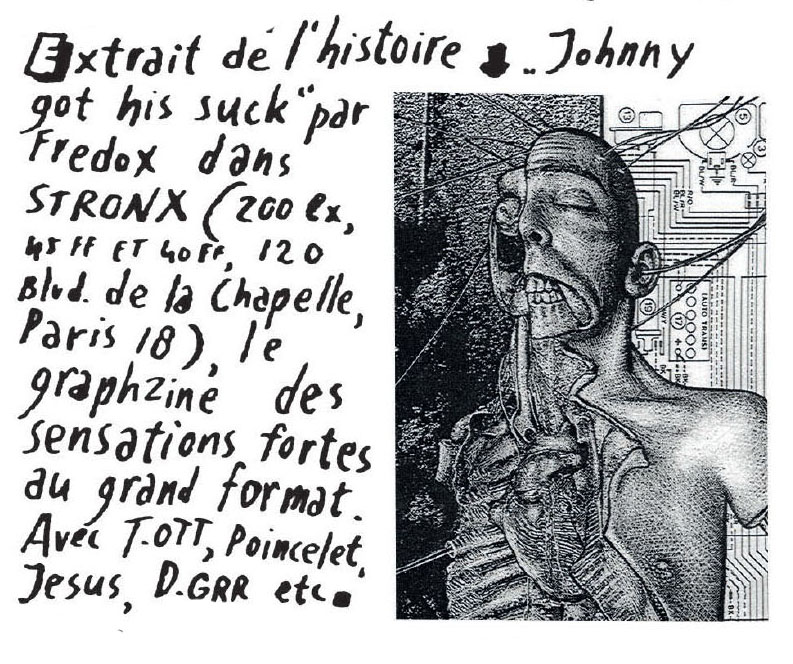 Extrait de l'histoire "Johnny
got his suck" par
Fredox dans
STRONX (200 ex,
45 FF ET 40 FF, 120
Blvd. de la Chapelle,
Paris 18), le
graphzine des
sensations fortes
au grand format.
Avec T-OTT, Poincelet,
Jesus, D.GRR etc.
13
5
3
BL/W
BL/R
R/G
BL/R
BL/W
19
17
(AUTO TRANS)